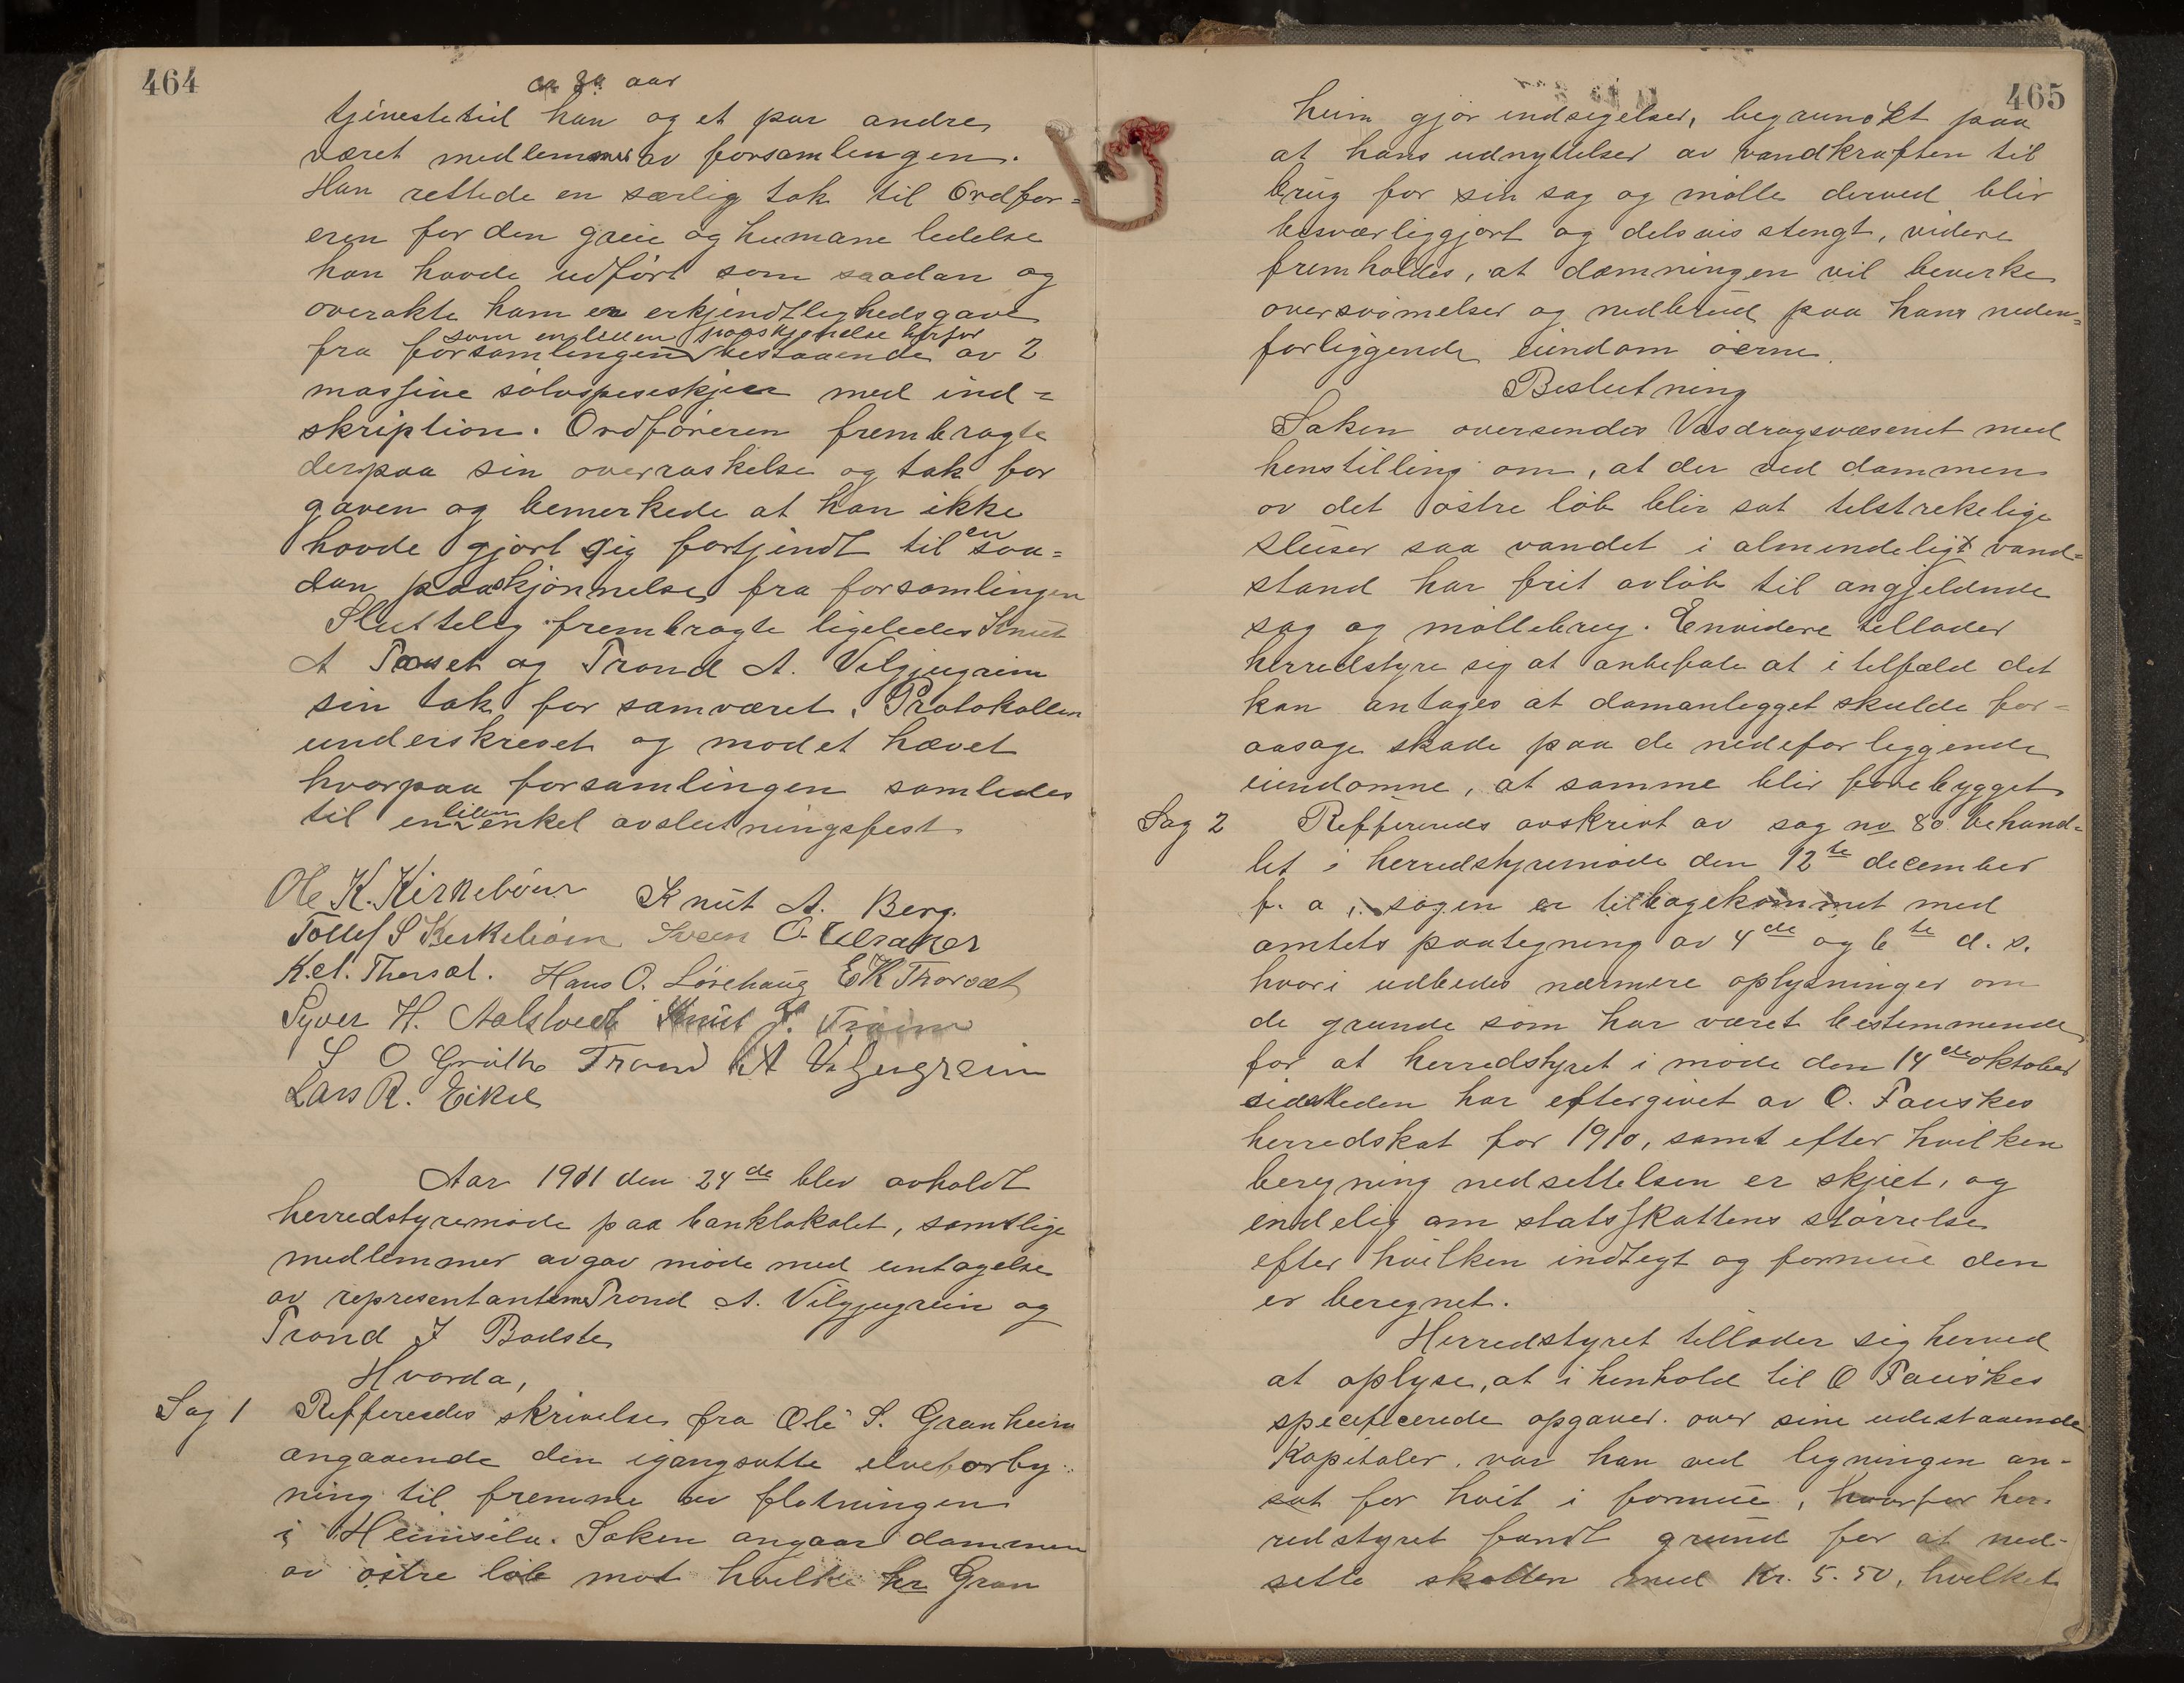 464
aar
tjenestetid han og et par andre
været medlemmer av forsamlingen.
Han rettede en særlig tak til Ordfør=
eren for den greie og humane ledelse
han havde udført som saadan og
overakte ham en erkjendtlighedsgave
som en liten paaskjønelse herfor
fra forsamlingen bestaaende av 2
massive sølvspiseskjeer med ind=
skription. Ordføreren frembragte
derpaa sin overraskelse og tak for
gaven og bemerkede at han ikke
havde gjort sig fortjendt til en saa=
dan paaskjønnelse fra forsamlingen
Sluttelig frembragte ligeledes Knut
A Tauset og Trond A. Velgjugreim
sin tak for samværet. Protokollen
underskrevet og mødet hævet
hvorpaa forsamlingen samledes
til en liten enkel avslutningsfest.
Ole K. Kirkebøen Knut A. Berg.
Tollef S Kirkebøen Svein O. Ulsaker
K. A. Thorsæt. Hans O. Løvehaug E K Thorsæt
Syver H. Aalstvedt Knut T. Trøim
S O Grøtho Trond A Velgjugreim
Lars R. Eikre
Aar 1911 den 24de blev avholdt
herredstyremøde paa banklokalet, samtlige
medlemmer avgav møde med untagelse
av representanterne Trond A. Velgjugrein og
Trond J Badste
Hvorda,
Sag 1 Refferedes skrivelse fra Ole S. Granheim
angaaende den igangsatte elveforby=
ning til fremme av fløtningen
i Heimsila. Saken angaar dammen
av østre løb mot hvilke hr Gran
465
heim gjør indsigelser, begrundet paa
at hans udnyttelser av vandkraften til
brug for sin sag og mølle derved blir
besværliggjort og delsvis stengt, videre
fremholdes, at dæmningen vil bevirke
oversvømelser og nedbrud paa hans neden=
forliggende eiendom øerne.
Beslutning
Saken oversendes Vasdragsvæsenet med
henstilling om, at der ved dammen
av det østre løb blir sat tilstrekelige
sluser saa vandet i almindeligt vand=
stand har frit avløb til angjeldende
sag og møllebrug. Envidere tillader
herredstyre sig at anbefale at i tilfæld det
kan antages at damanlegget skulde for=
aasage skade paa de nedeforliggende
eiendomne, at samme blir forebygget
Sag 2 Reffereredes avskrivt av sag no 80 behand=
let i herredstyremøde den 12te december
f. a., sagen er tilbagekommet med
amtets paategning av 4de og 6te d. s.
hvori udbedes nærmere oplysninger om
de grunde som har været bestemmende
for at herredstyret i møde den 14de oktober
sidstleden har eftergivet av O. Fauskes
herredskat for 1910, samt efter hvilken
beregning nedsettelsen er skjeet, og
endelig om statsskattens størrelse
efter hvilken indtegt og formue den
er beregnet.
Herredstyret tillader sig herved
at oplyse, at i henhold til O Fauskes
specificerede opgaver over sine udestaaende
kapitaler, var han ved ligningen an-
sat for høit i formue, hvorfor her-
redstyret fandt grund for at ned-
sette skatten med Kr. 5.50, hvilket